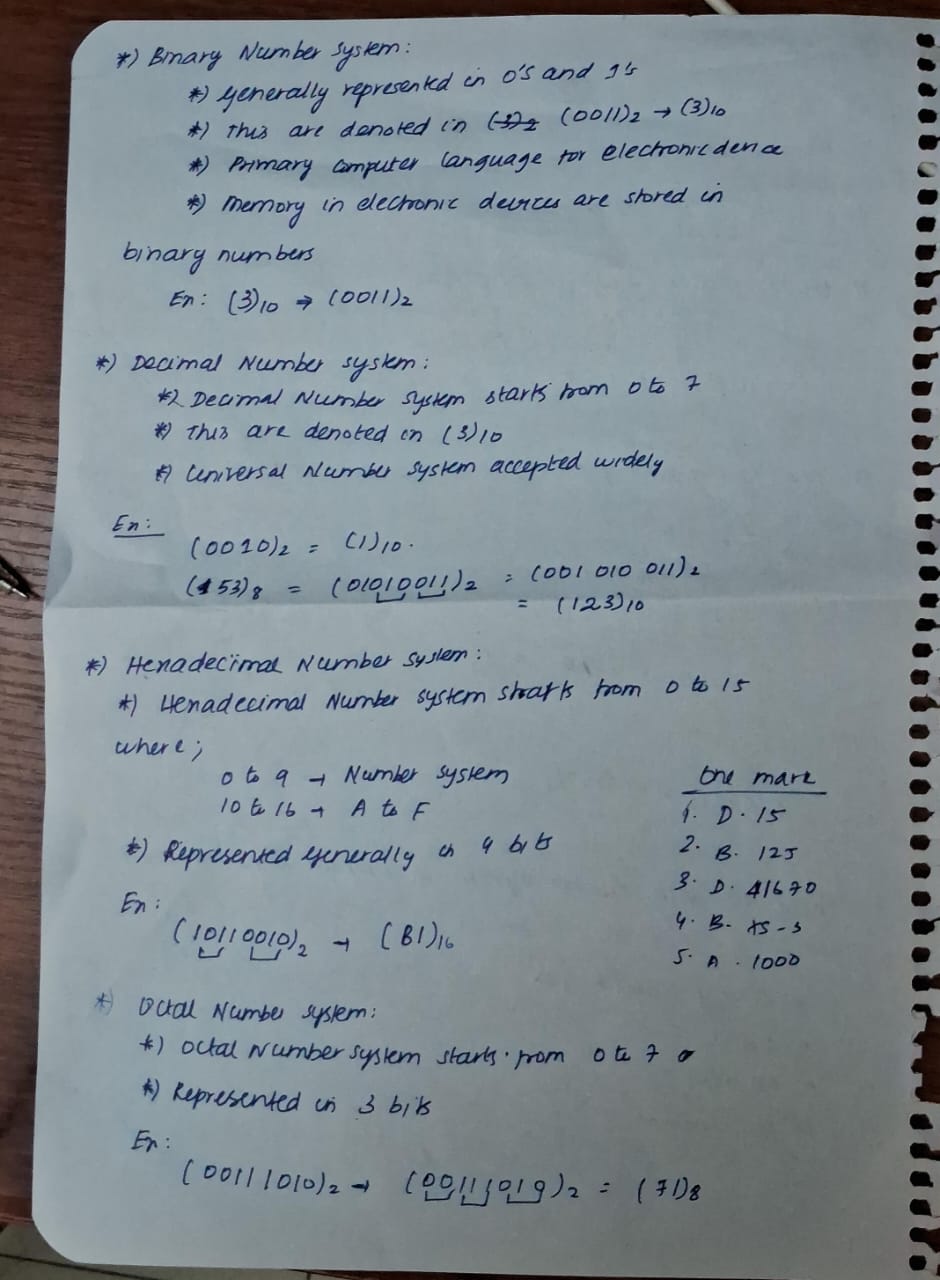 *) Binary Number system:
*) generally represented in 0's and 1's
*) This are denoted in (3)2 (0011)2 → (3)10
*) Primary computer language for electronic device
*) memory in electronic devices are stored in
binary numbers
Ex: (3)10 → (0011)2
*) Decimal Number system:
*) Decimal Number system starts from 0 to 7
*) This are denoted in (3)10
*) Universal Number system accepted widely
Ex:
(0010)2 = (1)10.
(153)8 = (01010011)2 = (001 010 011)2
= (123)10
*) Hexadecimal Number system:
*) Hexadecimal Number system starts from 0 to 15
where;
0 to 9 → Number system
10 to 16 → A to F
*) Represented generally in 4 bits
Ex:
(10110010)2 → (B1)16
One mark
1. D. 15
2. B. 125
3. D. 41670
4. B. XS-3
5. A. 1000
*) Octal Number system:
*) Octal Number system starts from 0 to 7
*) Represented in 3 bits
Ex:
(00111010)2 → (00111010)2 = (71)8